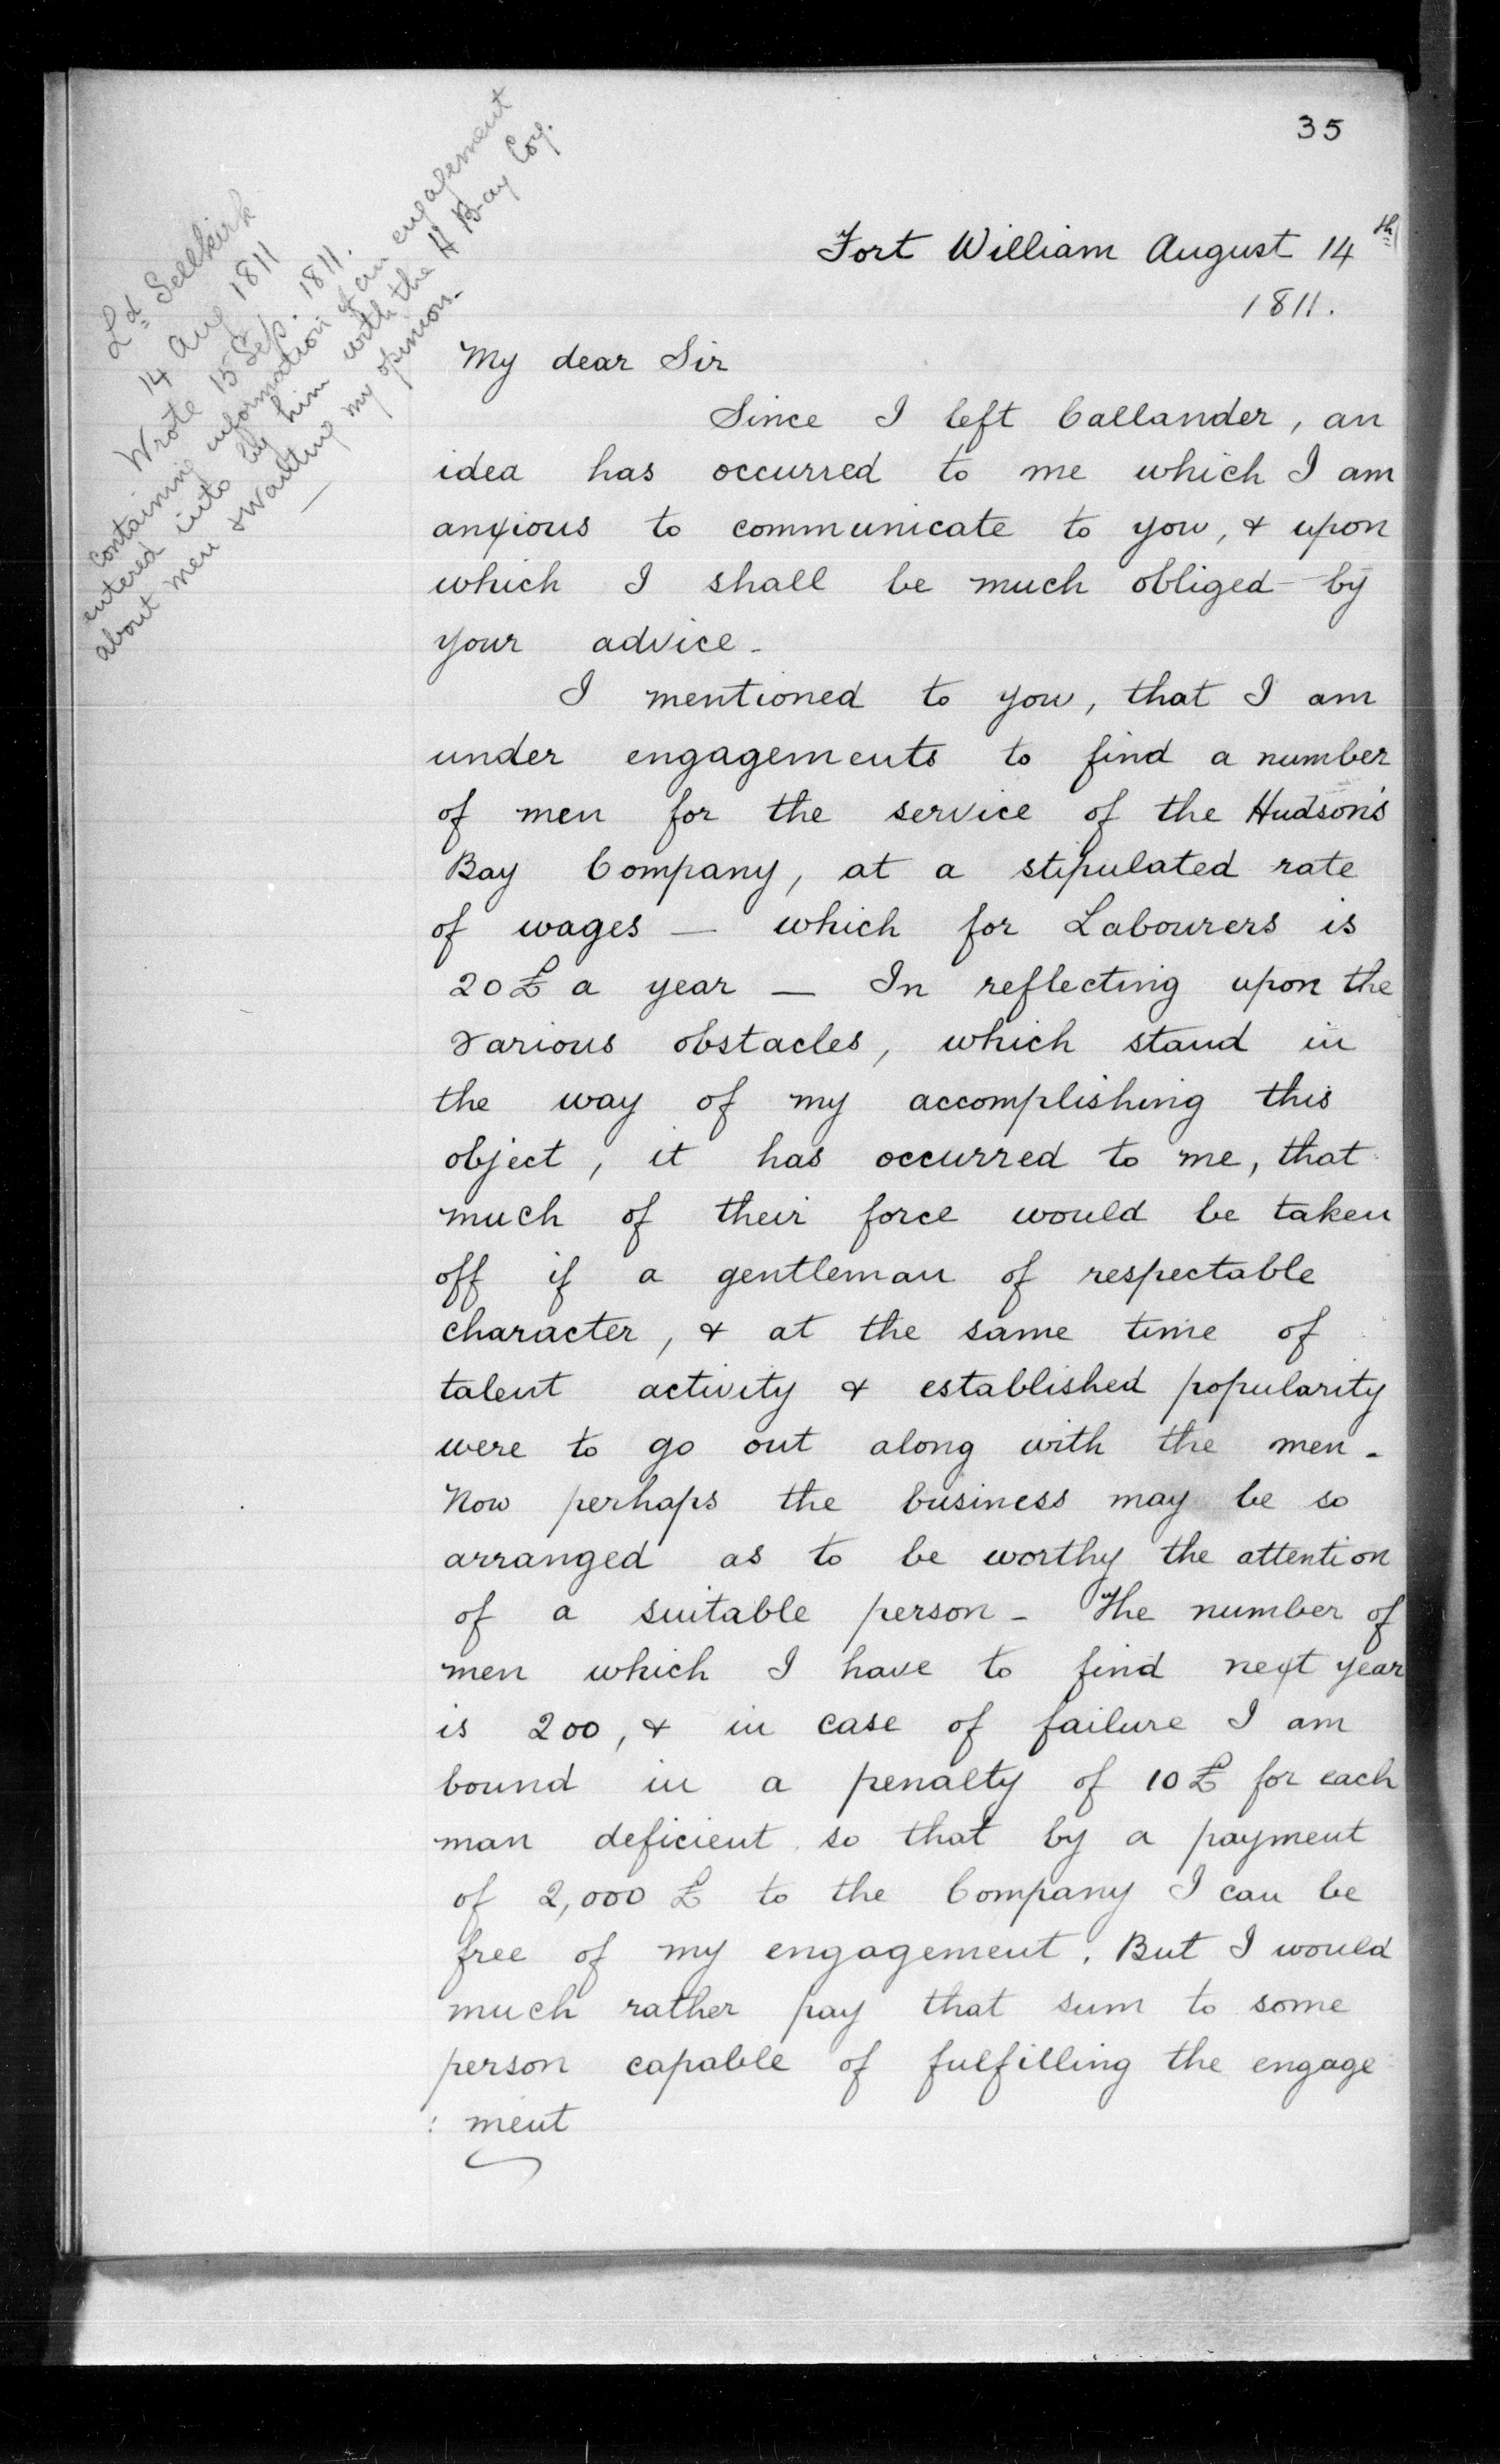 35
Ld Sellkirk
14 Aug 1811
Wrote 15 Sep. 1811.
containing information of an engagement
entered into by him with the H Bay Coy.
about men & wanting my opinion.
Fort William August 14th
1811.
My dear Sir
Since I left Callander, an
idea has occurred to me which I am
anxious to communicate to you, & upon
which I shall be much obliged by
your advice -
I mentioned to you, that I am
under engagements to find a number
of men for the service of the Hudson's
Bay Company, at a stipulated rate
of wages — which for Labourers is
20£ a year — In reflecting upon the
various obstacles, which stand in
the way of my accomplishing this
object, it has occurred to me, that
much of their force would be taken
off if a gentleman of respectable
character, & at the same time of
talent activity & established popularity
were to go out along with the men -
Now perhaps the business may be so
arranged as to be worthy the attention
of a suitable person - The number of
men which I have to find next year
is 200, & in case of failure I am
bound in a penalty of 10£ for each
man deficient so that by a payment
of 2,000 £ to the Company I can be
free of my engagement. But I would
much rather pay that sum to some
person capable of fulfilling the engage
: ment